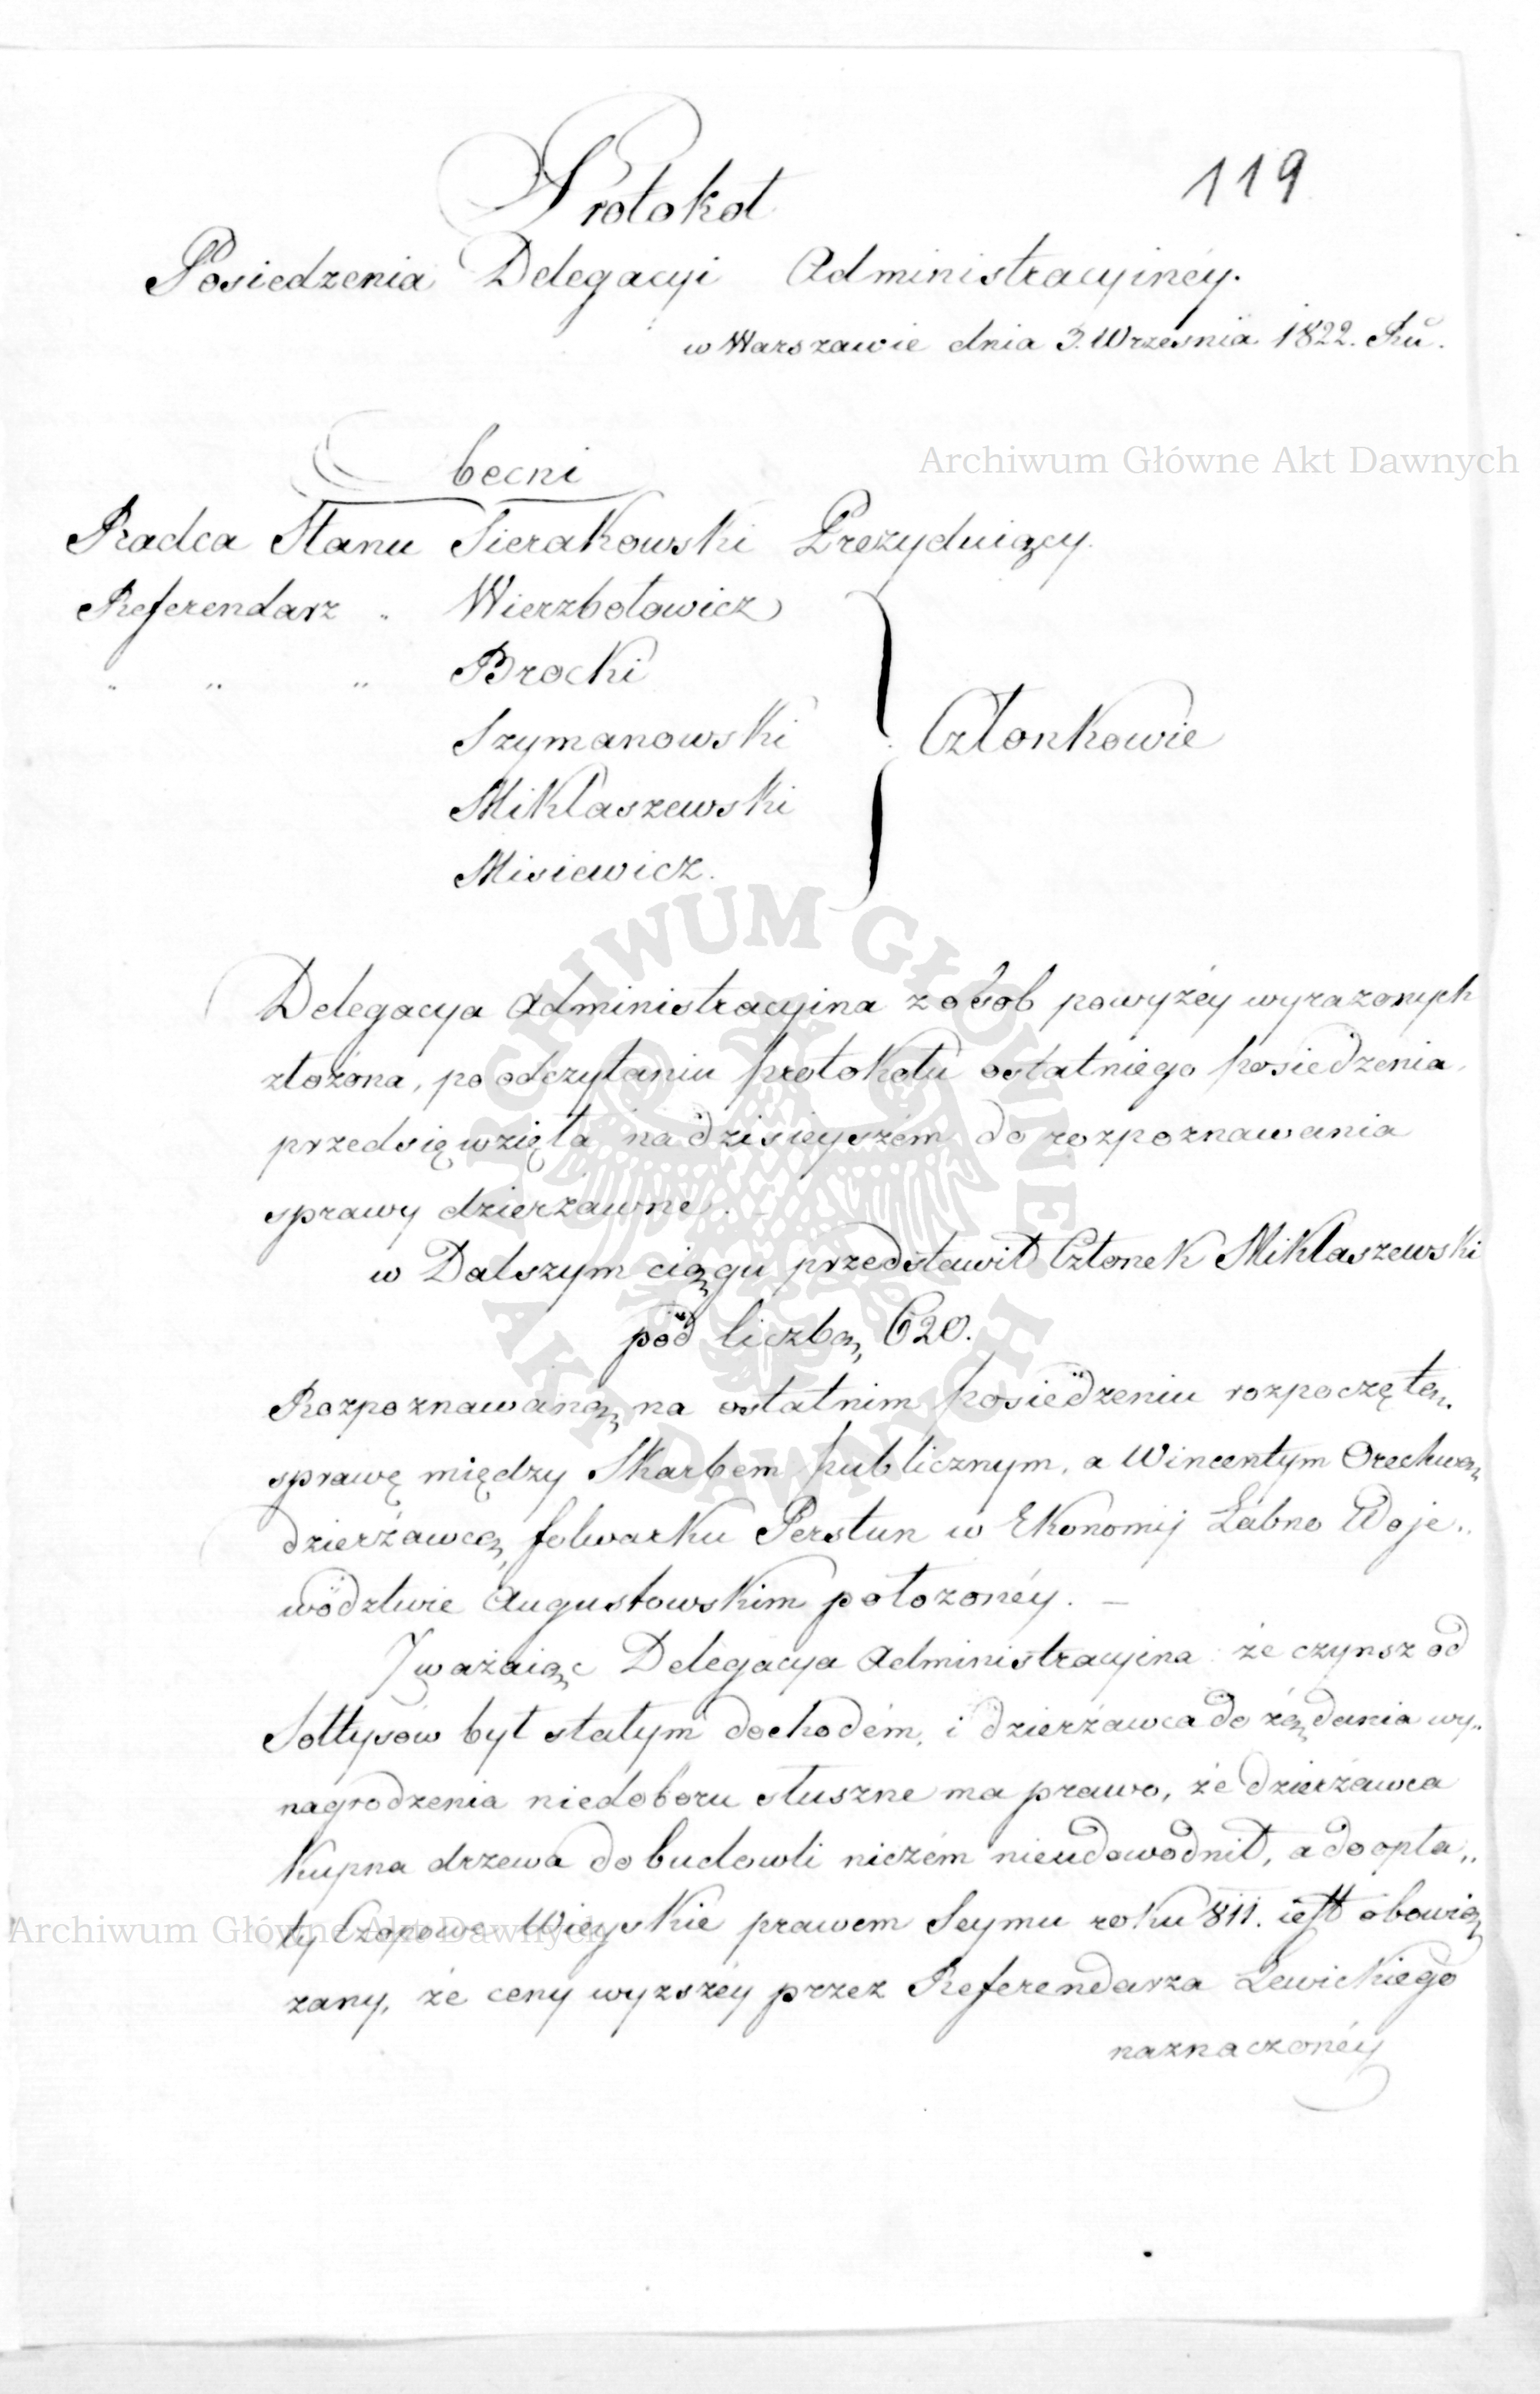 119
Protokoł
Posiedzenia Delegacyi Administracyinéy.
w Warszawie dnia 3. Września 1822. Ru.
Archiwum Główne Akt Dawnych
Obecni
Radca Stanu Sierakowski Prezyduiący.
Referendarz " Wierzbołowicz
" " " Brocki
Szymanowski
Członkowie
Mikłaszewski
Misiewicz.
ARCHIWUM GŁÓWNE AKT DAWNYCH
Delegacya Administracyina z osob powyżéy wyrazonych
złożona, po odczytaniu protokołu ostatniego posiedzenia,
przedsięwzięła na dzisieyszém do rozpoznawania
sprawy dzierżawne. -
w Dalszym ciągu przedstawił Członek Mikłaszewski
pod liczbą 620.
Rozpoznawaną na ostatnim posiedzeniu rozpoczętą,
sprawę między Skarbem publicznym, a Wincentym Orechwą
dzierżawcą folwarku Perstun w Ekonomij Łabno Woje„
wództwie Augustowskim położonéy. —
Zważaiąc Delegacya Administracyina że czynsz od
Sołtysów był stałym dochodém, i dzierżawca do żądania wy„
nagrodzenia niedoboru słuszne ma prawo, że dzierżawca
Kupna drzewa do budowli niczém nieudowodnił, a do opła„
ty Czopowe Wieyskie prawem Seymu roku 811. iest obowią
Archiwum Główne Akt Dawnych
zany, że ceny wyzszéy przez Referendarza Lewickiego
naznaczonéy